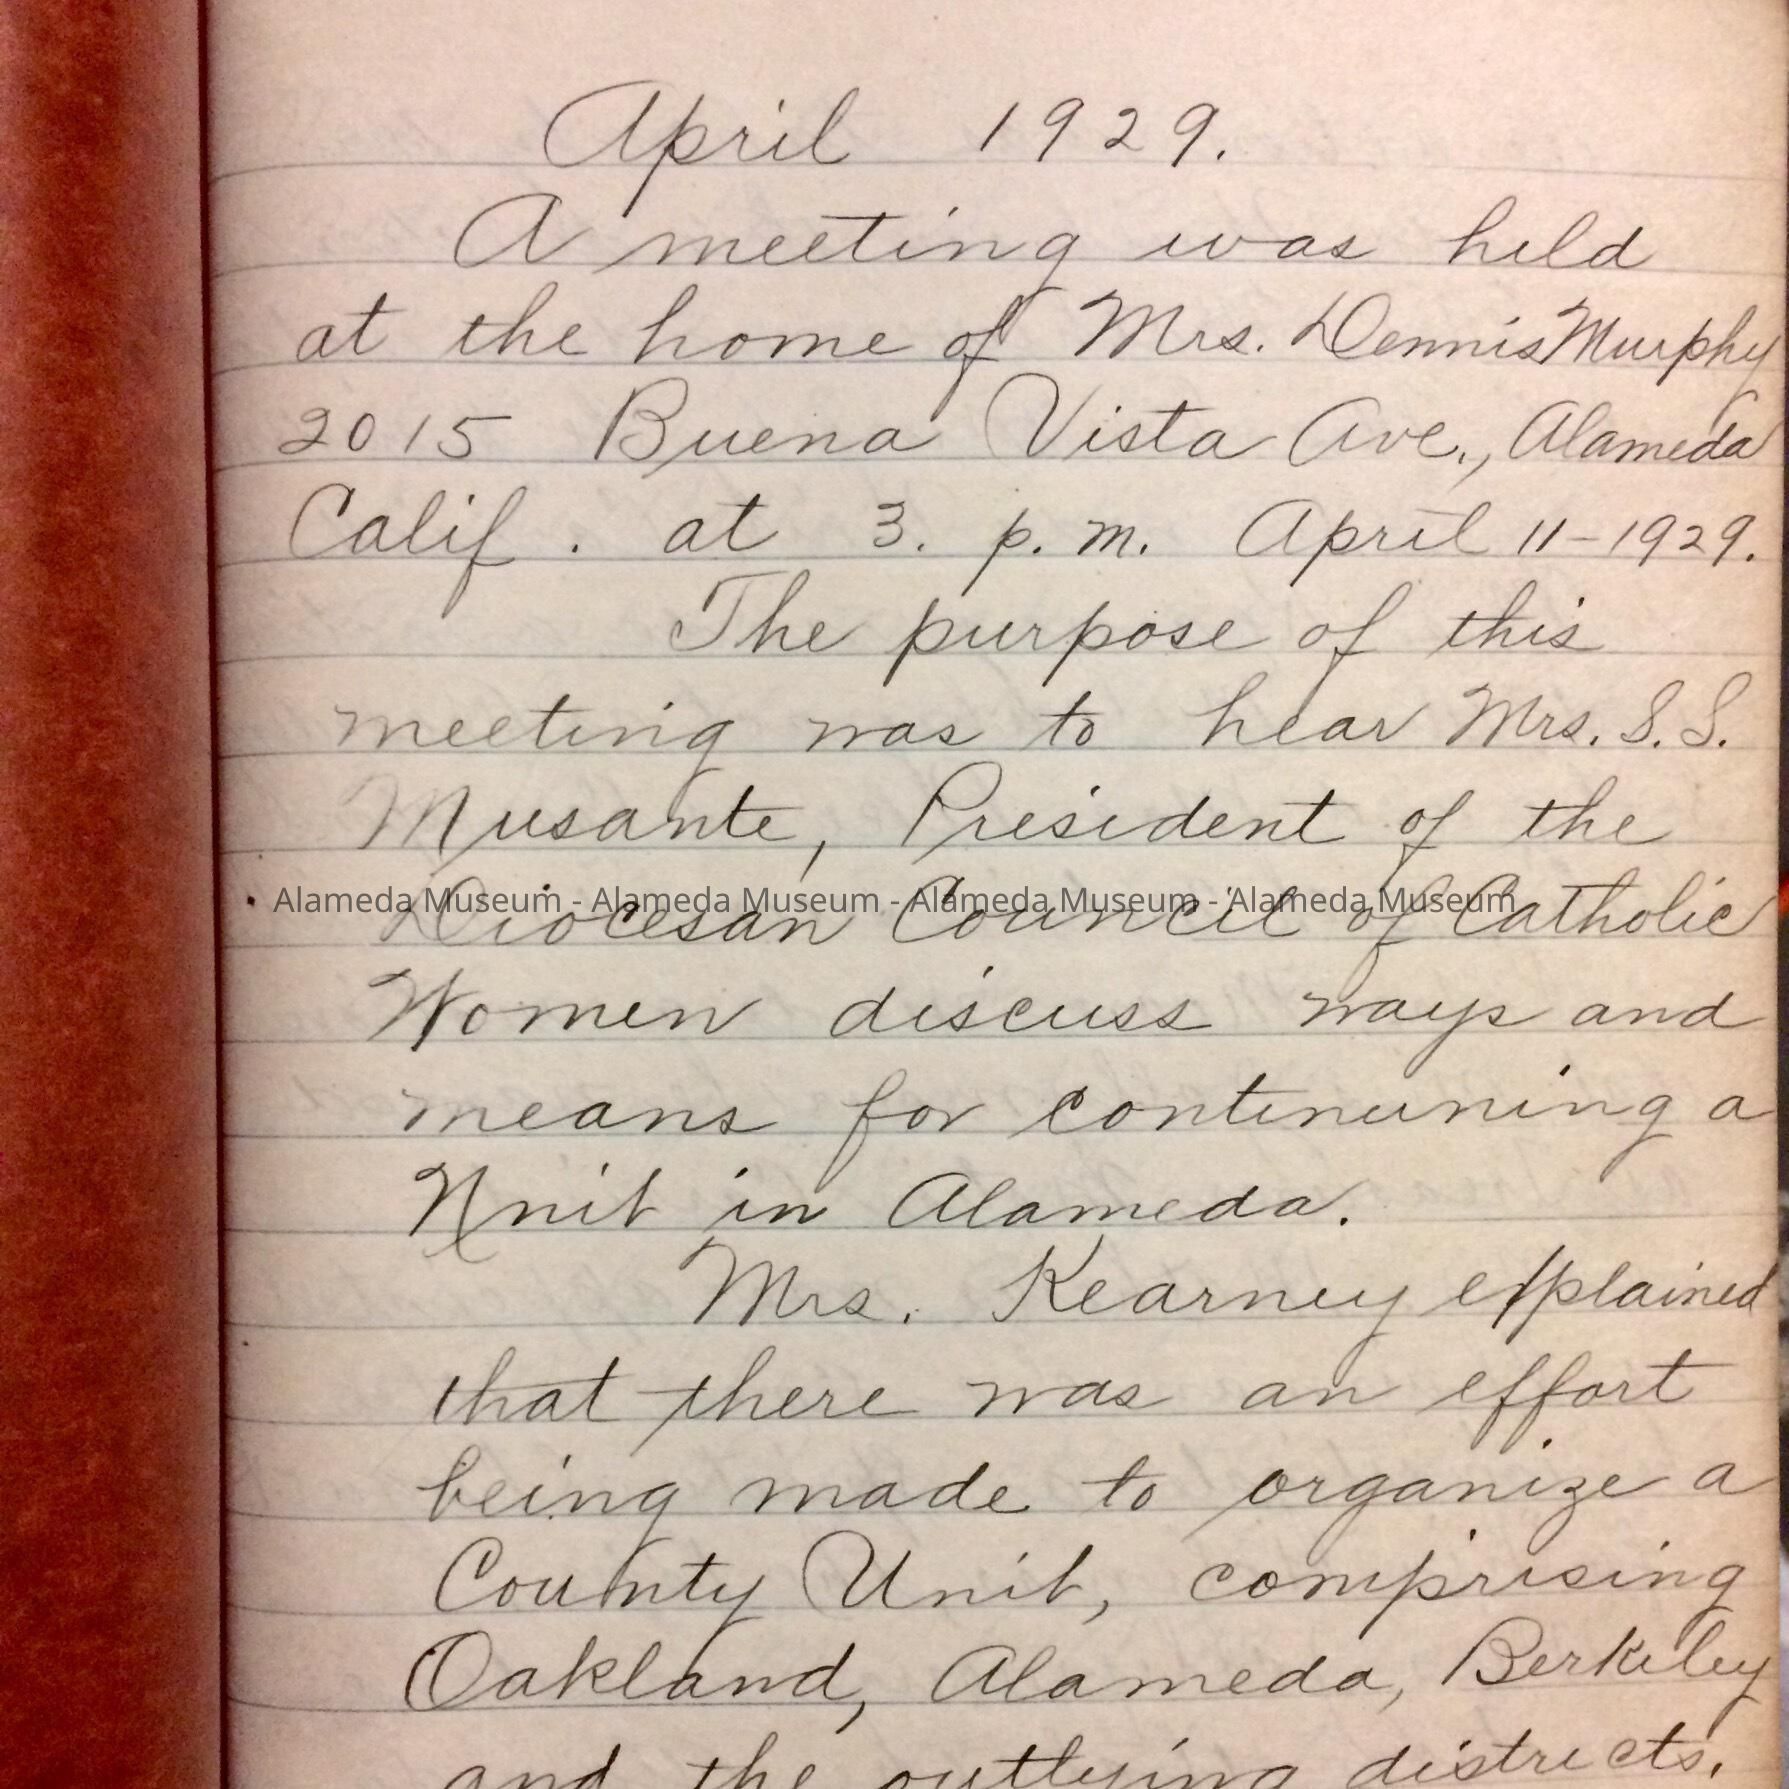 April 1929.
A meeting was held
at the home of Mrs. Dennis Murphy
2015 Buena Vista Ave., Alameda
Calif. at 3. p.m. April 11-1929.
The purpose of this
meeting was to hear Mrs. S. S.
Musante, President of the
Alameda Museum - Alameda Museum - Alameda Museum - Alameda Museum
Diocesan Council of Catholic
Women discuss ways and
means for continuning a
Unit in Alameda.
Mrs. Kearney explained
that there was an effort
being made to organize a
County Unit, comprising
Oakland, Alameda, Berkeley
and the outlying districts.